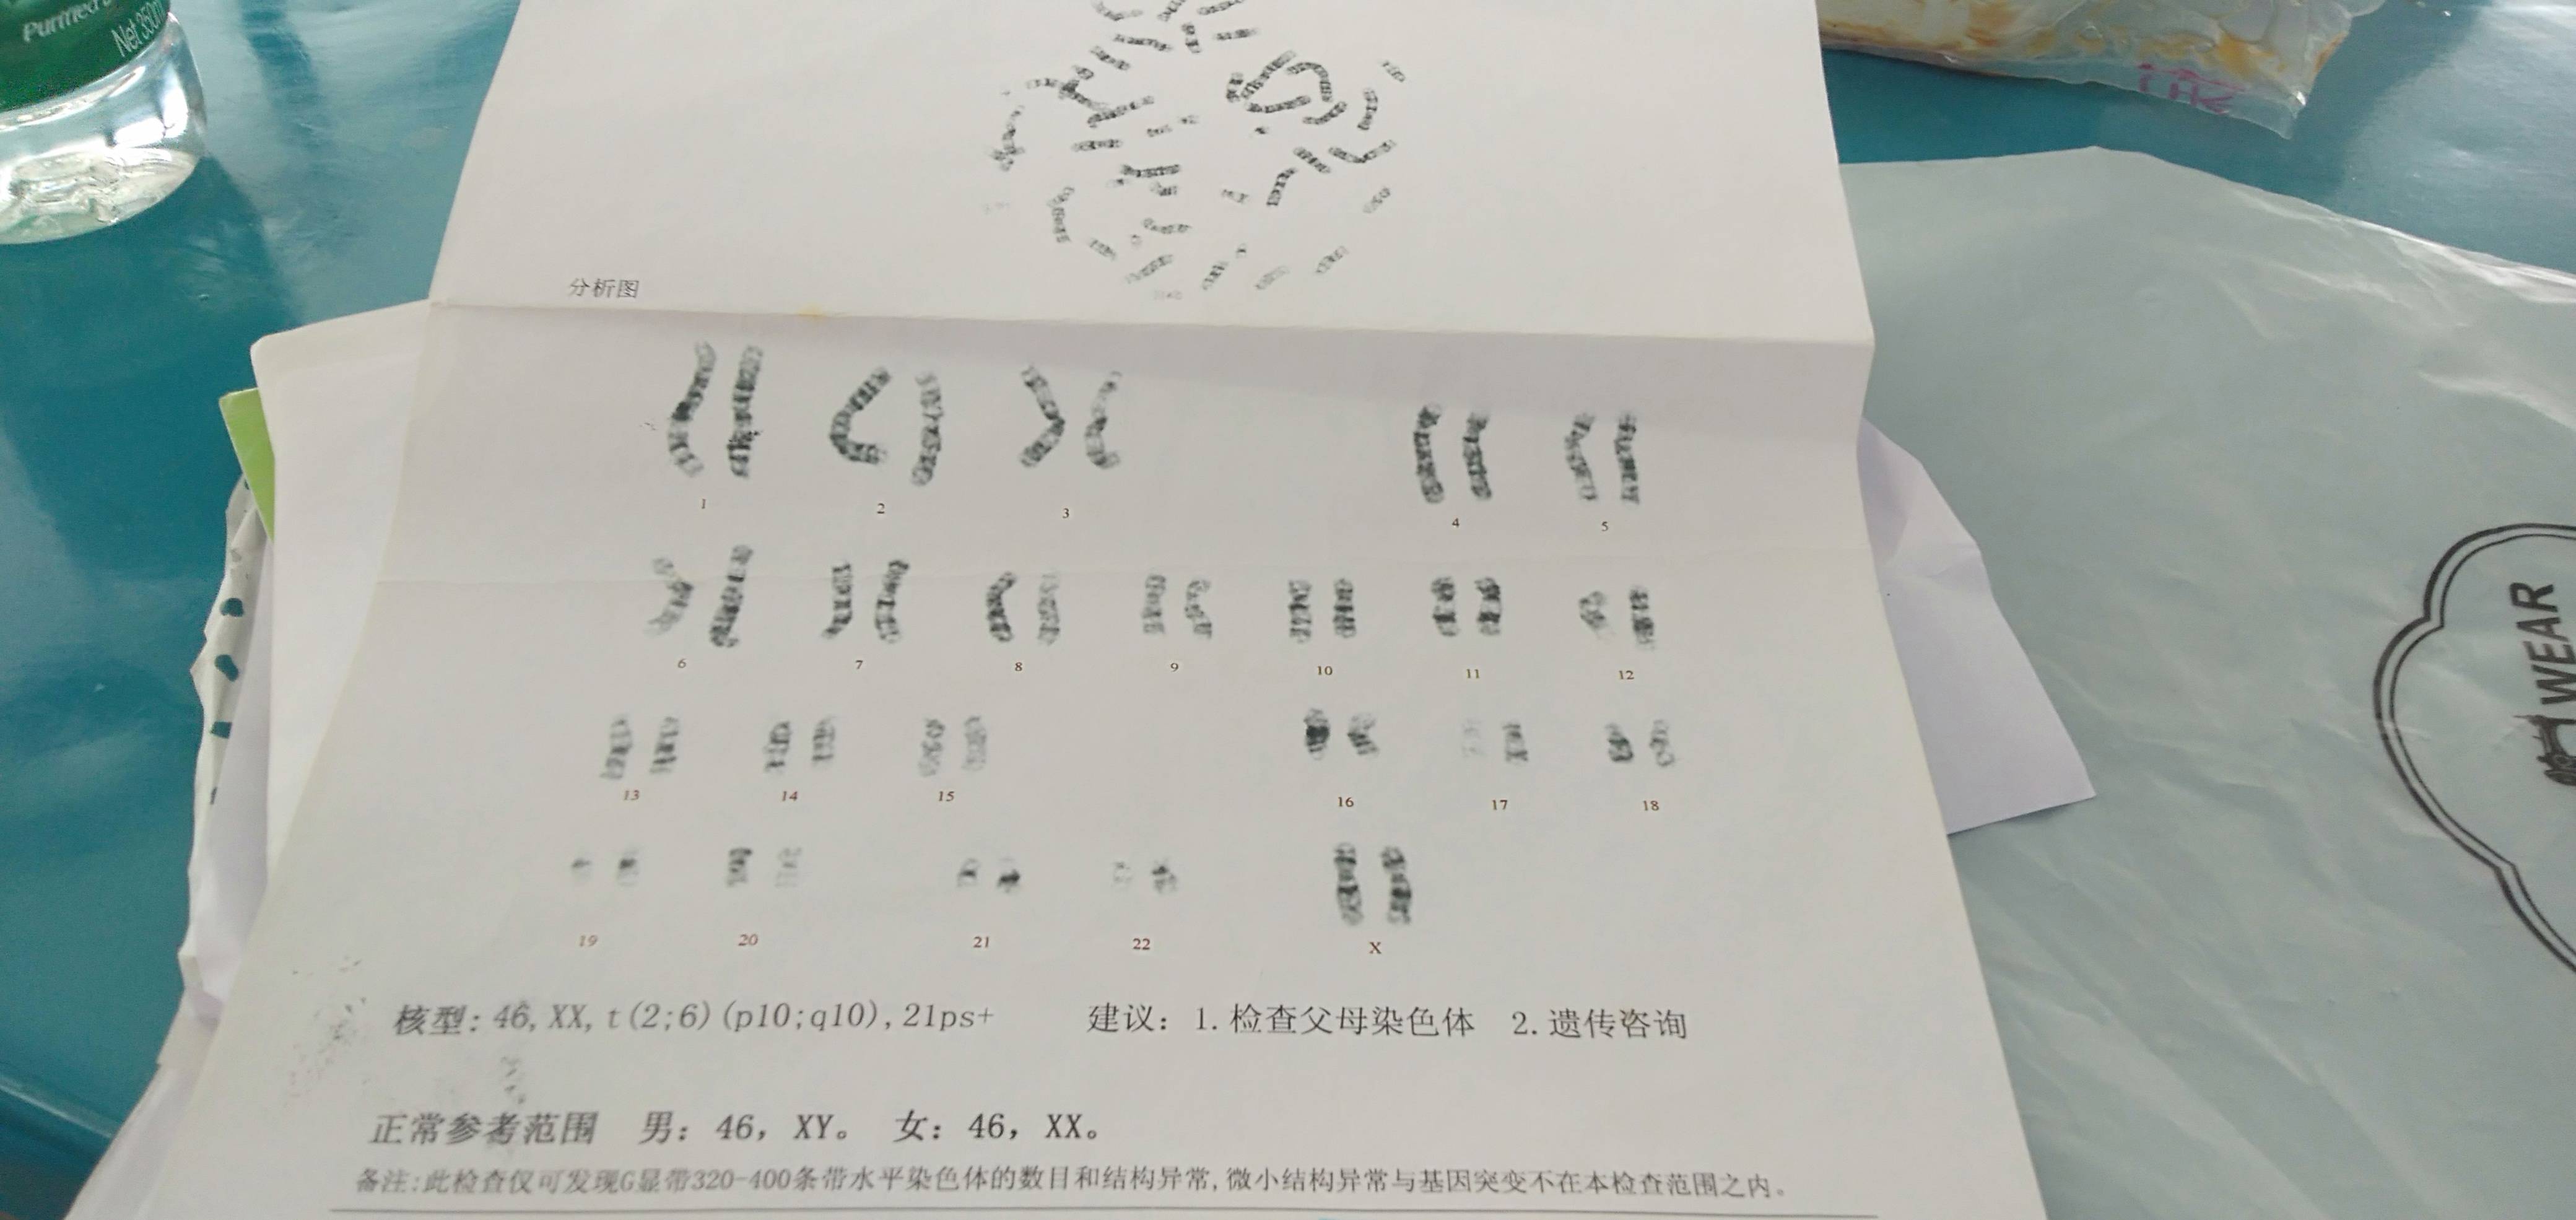 Purified
Net 350m
分析图
1 2 3 4 5
6 7 8 9 10 11 12
13 14 15 16 17 18
19 20 21 22 X
核型: 46, XX, t(2;6)(p10;q10), 21ps+ 建议: 1. 检查父母染色体 2. 遗传咨询
正常参考范围 男: 46, XY。 女: 46, XX。
备注:此检查仅可发现G显带320-400条带水平染色体的数目和结构异常,微小结构异常与基因突变不在本检查范围之内。
WEAR